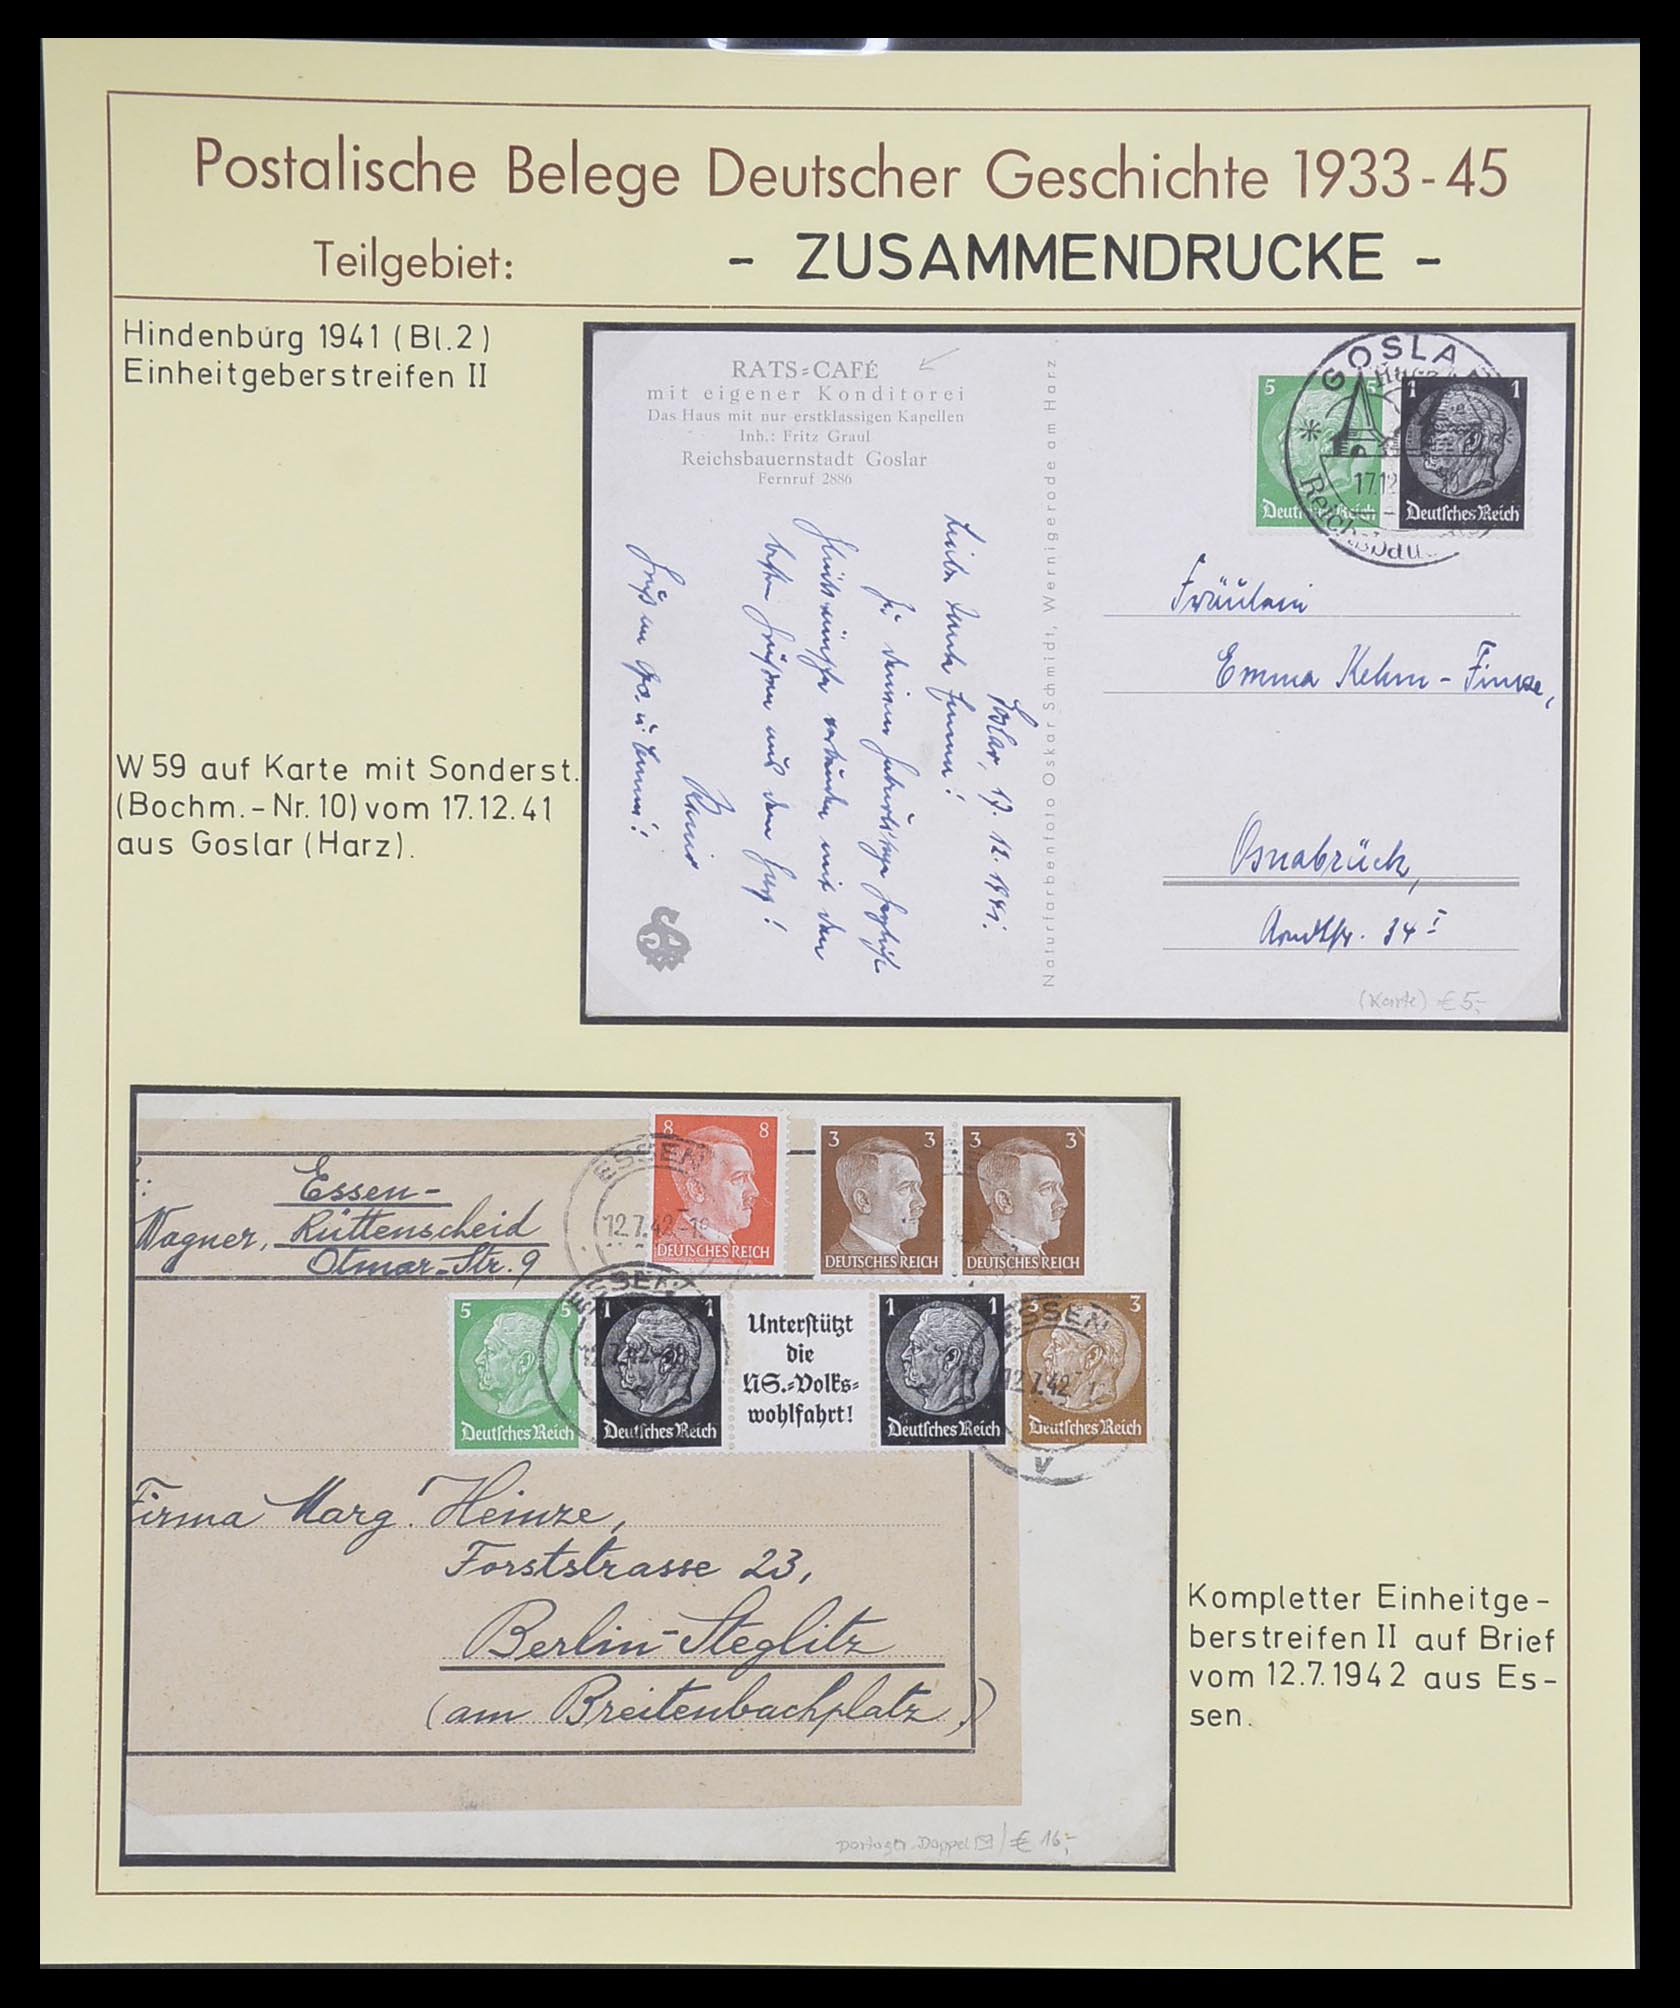 Postalische Belege Deutscher Geschichte 1933-45
Teilgebiet: - ZUSAMMENDRUCKE -
Hindenburg 1941 (Bl.2)
Einheitgeberstreifen II
W59 auf Karte mit Sonderst.
(Bochm.-Nr. 10) vom 17.12.41
aus Goslar (Harz).
RATS=CAFÉ
mit eigener Konditorei
Das Haus mit nur erstklassigen Kapellen
Inh.: Fritz Graul
Reichsbauernstadt Goslar
Fernruf 2886
Goslar, 17. 12. 1941.
Naturfarbenfoto Oskar Schmidt, Wernigerode am Harz
5 5
Deutsches Reich
1 1
Deutsches Reich
GOSLA
17.12
Fräulein
Emma Kehm-Finke,
Osnabrück,
Arndtstr. 34 I
(Karte) €5,-
Essen-
Wagner, Rüttenscheid
Otmar-Str. 9
8 8
DEUTSCHES REICH
3 3
DEUTSCHES REICH
3 3
DEUTSCHES REICH
ESSEN
12.7.42
5 5
Deutsches Reich
1 1
Deutsches Reich
Unterstützt
die
NS.=Volks=
wohlfahrt!
1 1
Deutsches Reich
3 3
Deutsches Reich
ESSEN
12.7.42
ESSEN
12.7.42
v
Firma Marg. Heinze,
Forststrasse 23,
Berlin-Steglitz
(am Breitenbachplatz)
€ 16,-
Kompletter Einheitge-
berstreifen II auf Brief
vom 12.7.1942 aus Es-
sen.